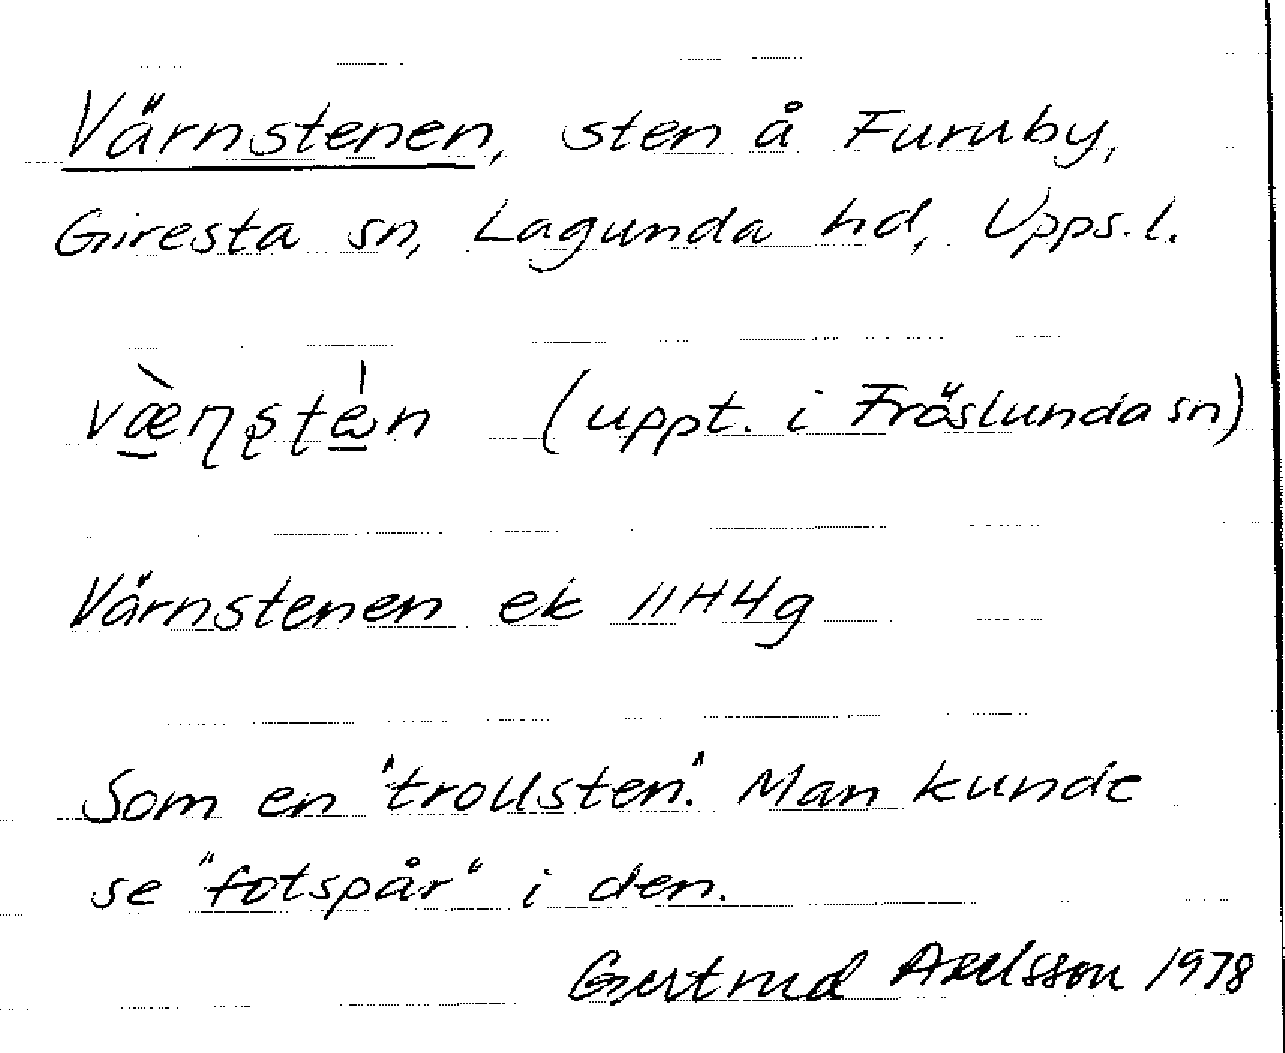 Värnstenen, sten å Furuby,
Giresta sn, Lagunda hd, Upps. l.
væ̀ɳʂtén (uppt. i Fröslunda sn)
Värnstenen ek 11H4g
Som en "trollsten". Man kunde
se "fotspår" i den.
Gertrud Axelsson 1978